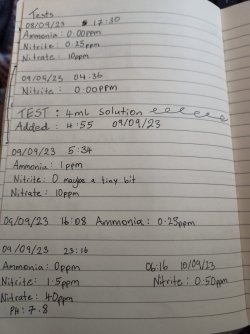 Tests
08/09/23 17:30
Ammonia: 0.00ppm
Nitrite: 0.25ppm
Nitrate: 10ppm
09/09/23 04:36
Nitrite: 0.00ppm
TEST: 4ml solution
Added: 4:55 09/09/23
09/09/23 5:34
Ammonia: 1ppm
Nitrite: 0 maybe a tiny bit
Nitrate: 10ppm
09/09/23 16:08 Ammonia: 0.25ppm
09/09/23 23:16
Ammonia: 0ppm
Nitrite: 1.5ppm
Nitrate: 40ppm
PH: 7.8
06:16 10/09/23
Nitrite: 0.50ppm